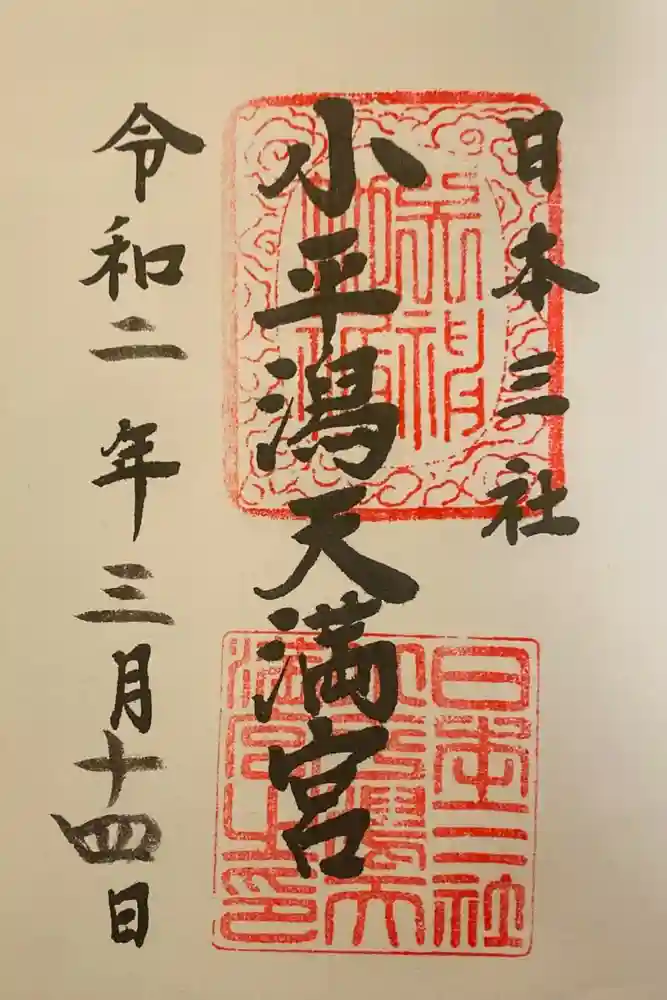 日本三社
小平潟天満宮
令和二年三月十四日
日本三社
小平潟天
満宮之印